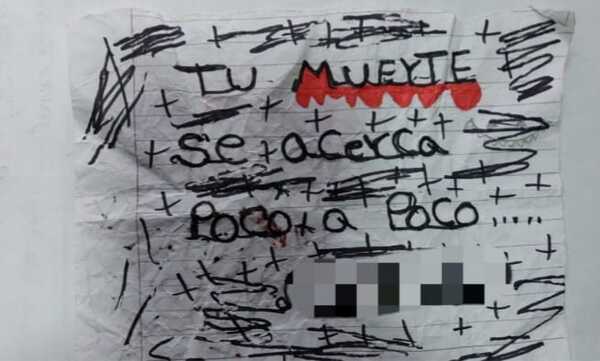 TU MUERTE
se acerca
POCO a POCO.....